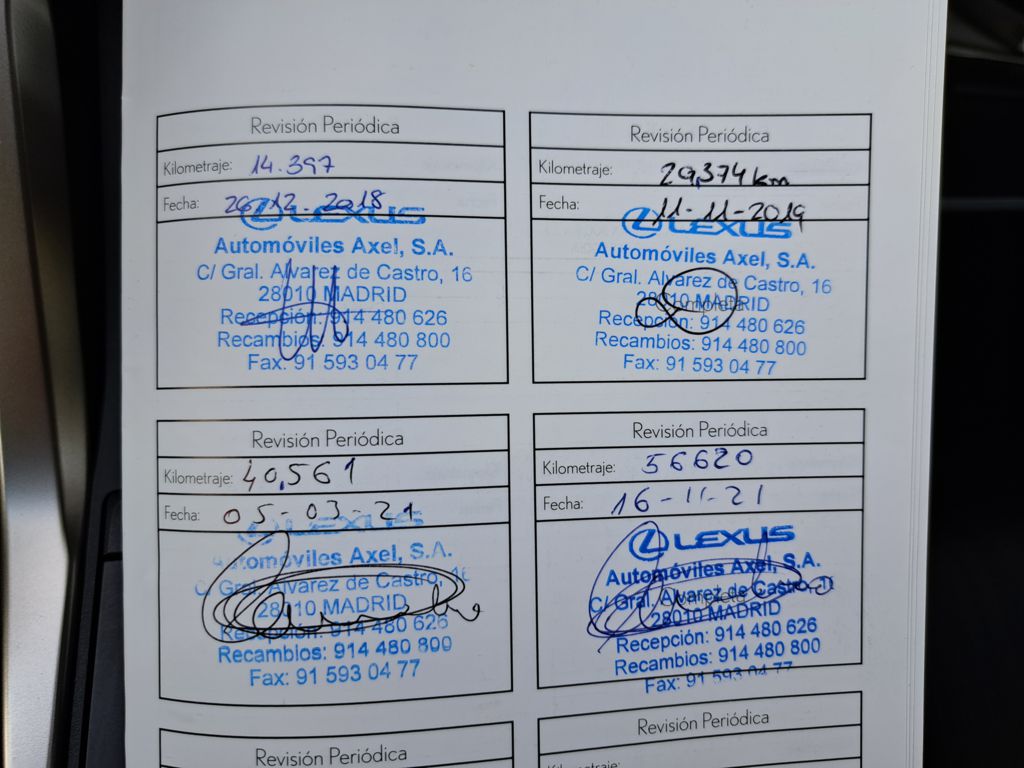 Revisión Periódica
Kilometraje: 14.397
Fecha: 26-12-2018
LEXUS
Automóviles Axel, S.A.
C/ Gral. Alvarez de Castro, 16
28010 MADRID
Recepción: 914 480 626
Recambios: 914 480 800
Fax: 91 593 04 77
Revisión Periódica
Kilometraje: 29,374 km
Fecha: 11-11-2019
LEXUS
Automóviles Axel, S.A.
C/ Gral. Alvarez de Castro, 16
28010 MADRID
Recepción: 914 480 626
Recambios: 914 480 800
Fax: 91 593 04 77
Revisión Periódica
Kilometraje: 40,561
Fecha: 05-03-21
LEXUS
Automóviles Axel, S.A.
C/ Gral. Alvarez de Castro, 16
28010 MADRID
Recepción: 914 480 626
Recambios: 914 480 800
Fax: 91 593 04 77
Revisión Periódica
Kilometraje: 56620
Fecha: 16-11-21
LEXUS
Automóviles Axel, S.A.
C/ Gral. Alvarez de Castro, 16
28010 MADRID
Recepción: 914 480 626
Recambios: 914 480 800
Fax: 91 593 04 77
Revisión Periódica
Revisión Periódica
Kilometraje: